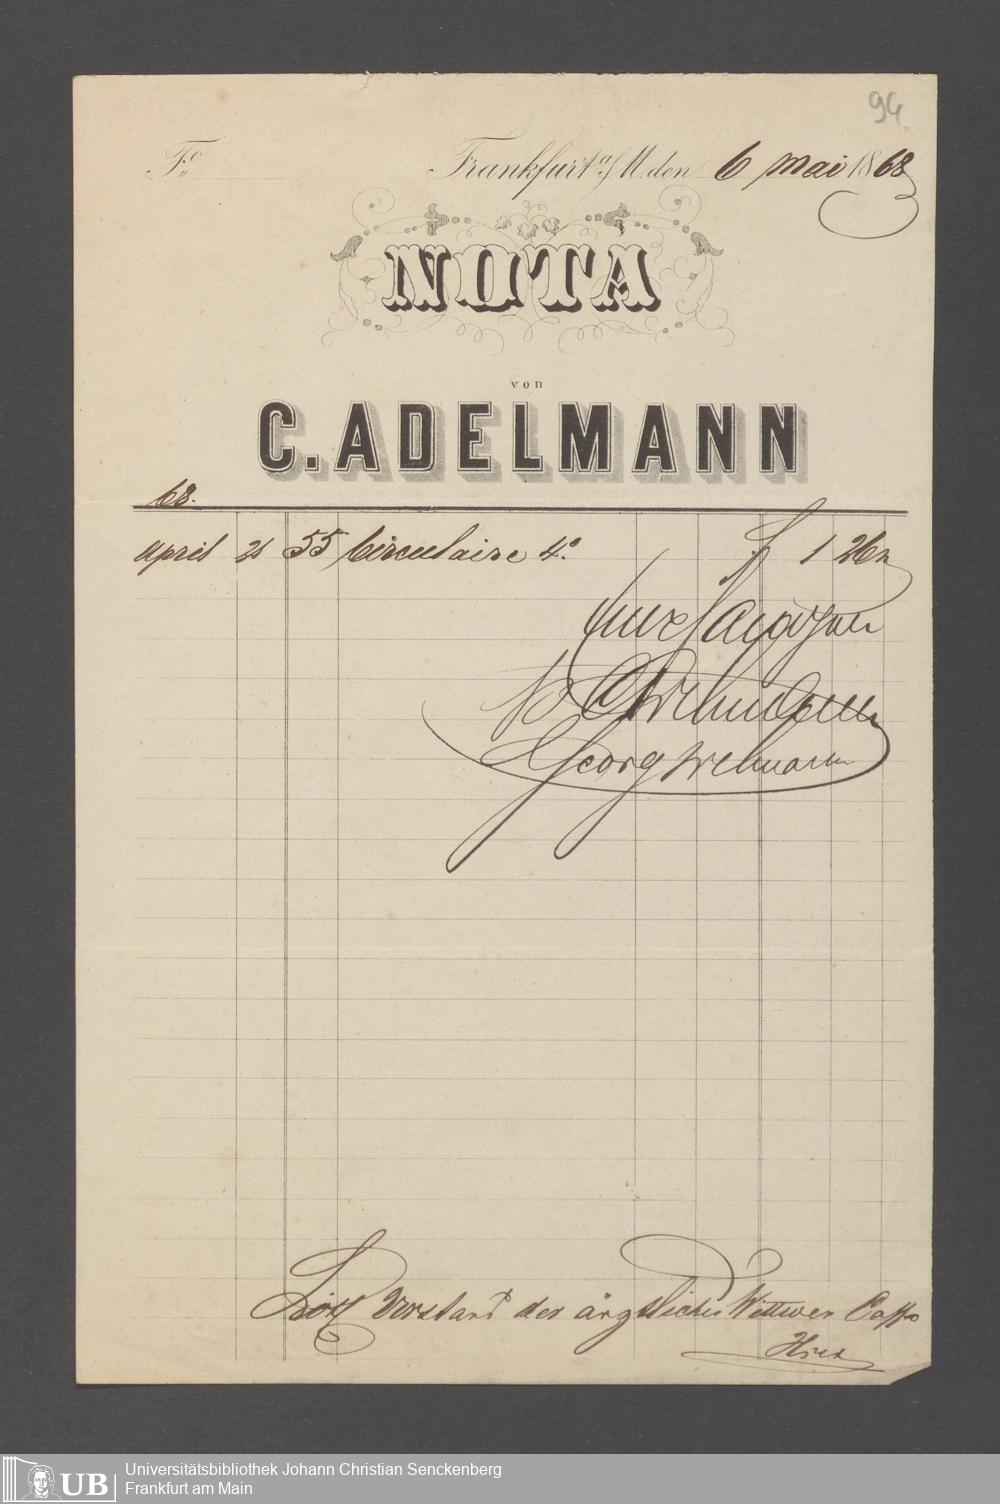 94
Fo Frankfurt a/M. den 6 Mai 1868
NOTA
von
C. ADELMANN
68.
April 21 55 Circulaire 4o f 1 26
Georg
Löbl Vorstand der ärztlichen Wittwen Casse
Hier
UB Universitätsbibliothek Johann Christian Senckenberg
Frankfurt am Main